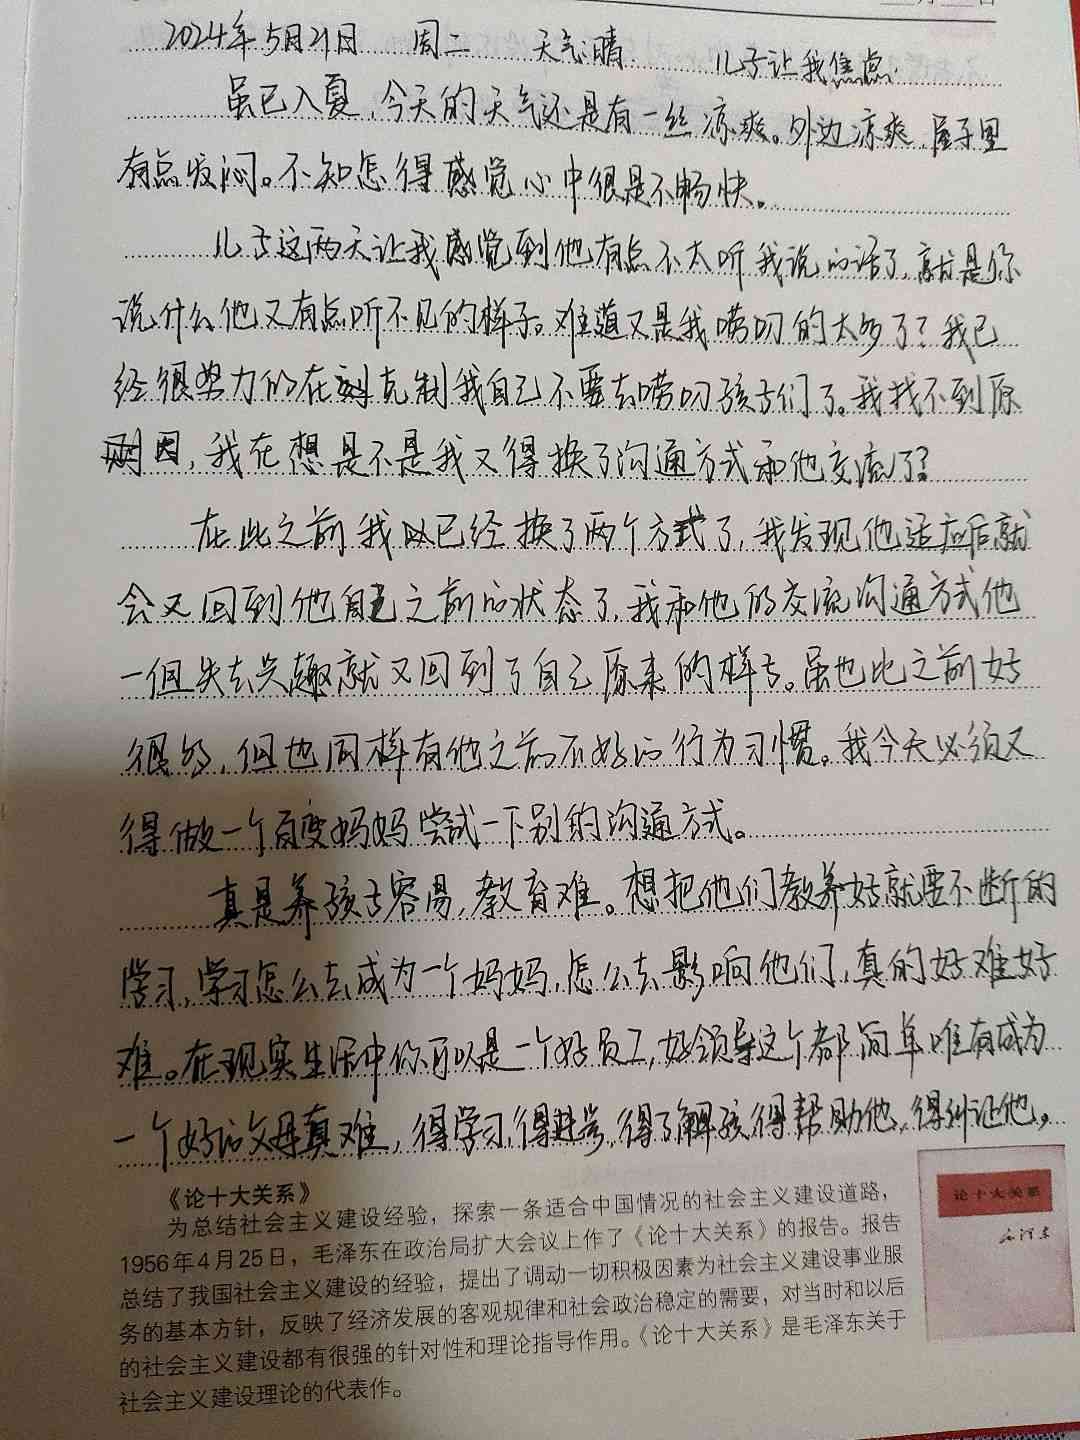 2024年5月21日 周二 天气:晴 儿子让我焦虑
虽已入夏,今天的天气还是有一丝凉爽。外边凉爽,屋子里
有点发闷。不知怎得感觉心中很是不畅快。
儿子这两天让我感觉到他有点不太听我说的话了,就是你
说什么他又有点听不见的样子。难道又是我唠叨的太多了?我已
经很努力的在克制我自己不要去唠叨孩子们了。我找不到原
因,我在想是不是我又得换了沟通方式和他交流了?
在此之前我以已经换了两个方式了,我发现他适应后就
会又回到他自己之前的状态了,我和他的交流沟通方式他
一但失去兴趣就又回到了自己原来的样子。虽也比之前好
很多,但也同样有他之前不好的行为习惯。我今天必须又
得做一个百变妈妈尝试一下别的沟通方式。
真是养孩子容易,教育难。想把他们教养好就要不断的
学习,学习怎么去成为一个妈妈,怎么去影响他们,真的好难好
难。在现实生活中你可以是一个好员工,好领导这个都简单唯有成为
一个好的父母真难,得学习,得进步,得了解孩得帮助他,得纠正他,
《论十大关系》
为总结社会主义建设经验,探索一条适合中国情况的社会主义建设道路,
1956年4月25日,毛泽东在政治局扩大会议上作了《论十大关系》的报告。报告
总结了我国社会主义建设的经验,提出了调动一切积极因素为社会主义建设事业服
务的基本方针,反映了经济发展的客观规律和社会政治稳定的需要,对当时和以后
的社会主义建设都有很强的针对性和理论指导作用。《论十大关系》是毛泽东关于
社会主义建设理论的代表作。
论十大关系
毛泽东